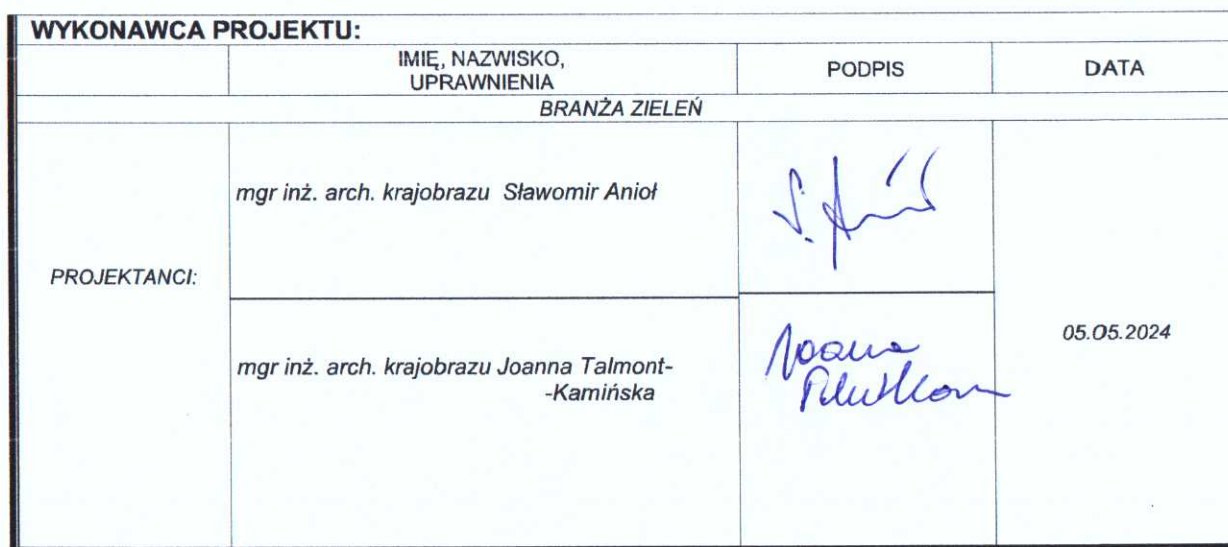 WYKONAWCA PROJEKTU:
IMIĘ, NAZWISKO,
UPRAWNIENIA
PODPIS
DATA
BRANŻA ZIELEŃ
PROJEKTANCI:
mgr inż. arch. krajobrazu Sławomir Anioł
mgr inż. arch. krajobrazu Joanna Talmont-
-Kamińska
05.05.2024